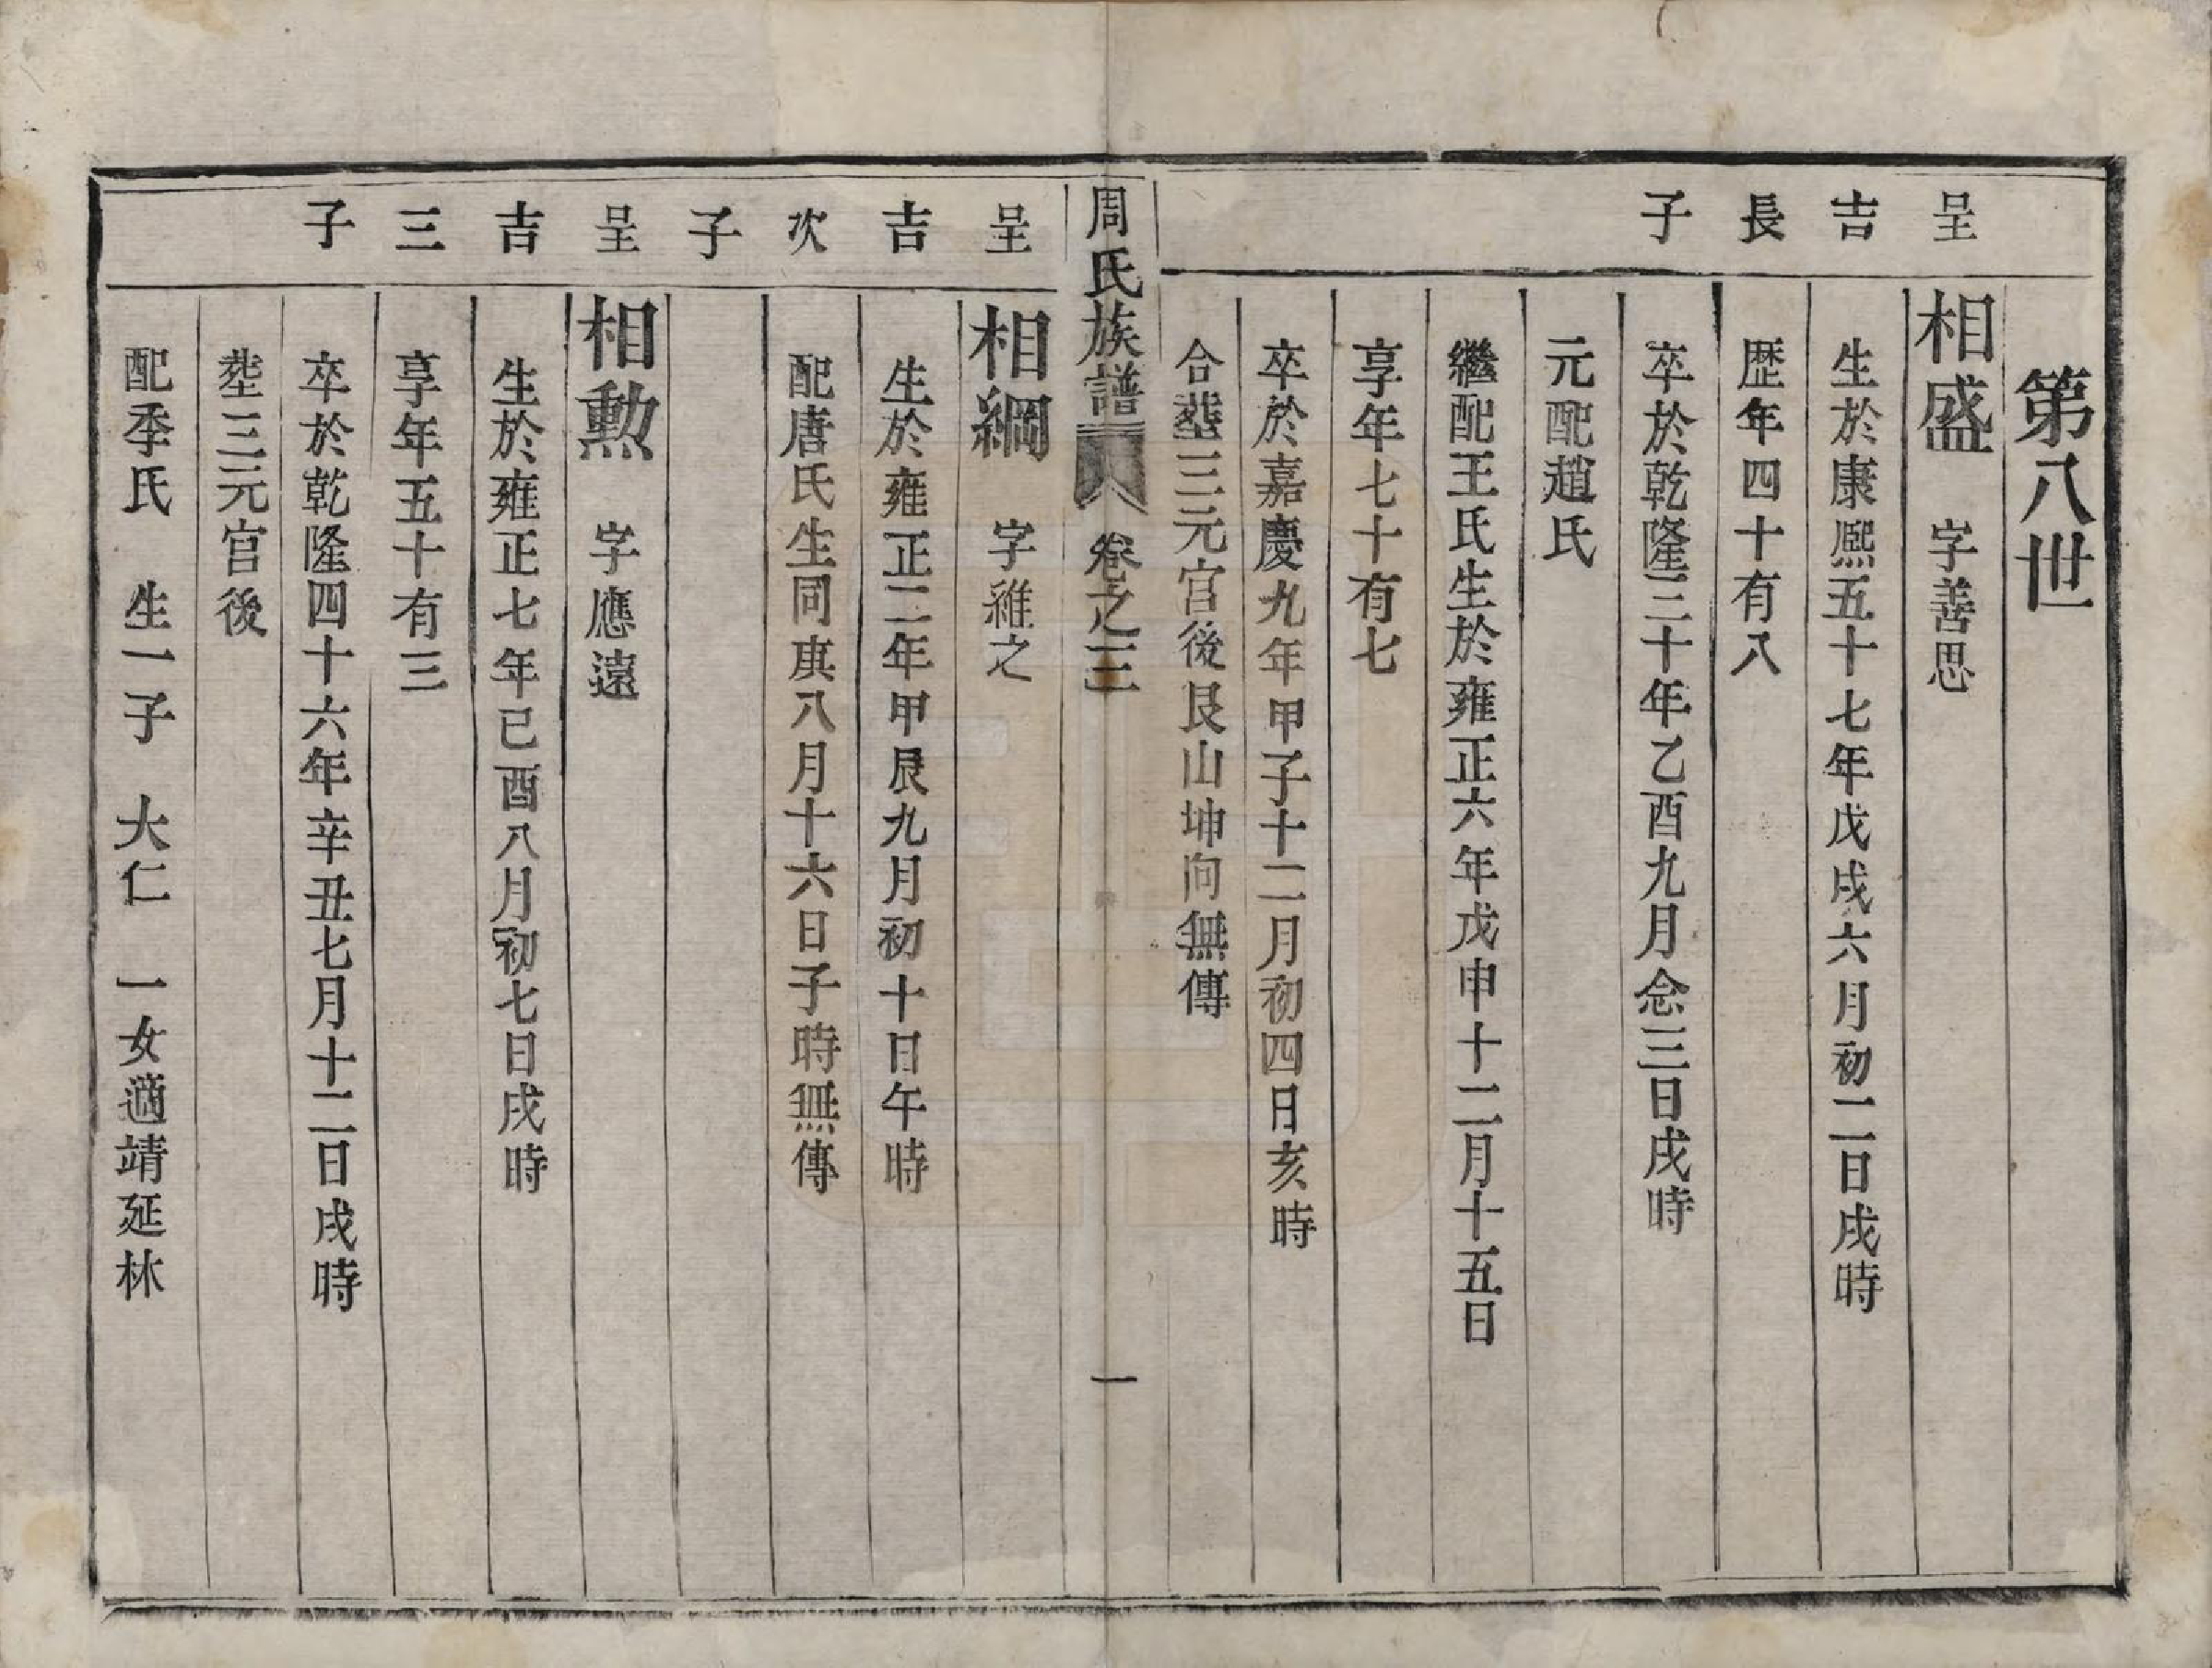 第八世
呈吉長子
相盛　字善思
生於康熙五十七年戊戌六月初二日戌時
歷年四十有八
卒於乾隆三十年乙酉九月念三日戌時
元配趙氏
繼配王氏生於雍正六年戊申十二月十五日
享年七十有七
卒於嘉慶九年甲子十二月初四日亥時
合塟三元宮後艮山坤向無傳
周氏族譜　卷之三　一
呈吉次子
相綱　字維之
生於雍正二年甲辰九月初十日午時
配唐氏生同庚八月十六日子時無傳
呈吉三子
相勲　字應遠
生於雍正七年己酉八月初七日戌時
享年五十有三
卒於乾隆四十六年辛丑七月十二日戌時
塟三元宮後
配季氏　生一子　大仁　一女適靖延林